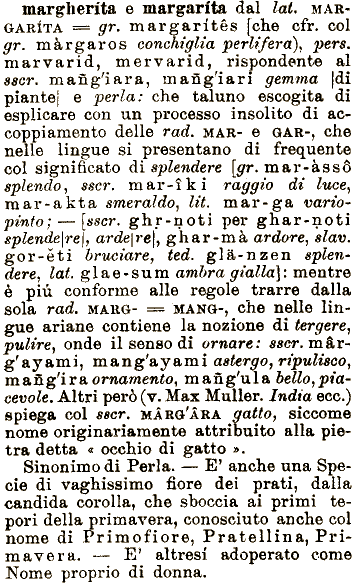 margheríta e margaríta dal lat. MAR-
GARÍTA = gr. margarítês [che cfr. col
gr. màrgaros conchiglia perlifera), pers.
marvarid, mervarid, rispondente al
sscr. mañg'iara, mañg'iarí gemma |di
piante| e perla: che taluno escogita di
esplicare con un processo insolito di ac-
coppiamento delle rad. MAR- e GAR-, che
nelle lingue si presentano di frequente
col significato di splendere [gr. mar-àssô
splendo, sscr. mar-îki raggio di luce,
mar-akta smeraldo, lit. mar-ga vario-
pinto; — [sscr. ghr-ṇoti per ghar-ṇoti
splende|re|, arde|re|, ghar-mà ardore, slav.
gor-ëti bruciare, ted. glä-nzen splen-
dere, lat. glae-sum ambra gialla]: mentre
è piú conforme alle regole trarre dalla
sola rad. MARG- = MANG-, che nelle lin-
gue ariane contiene la nozione di tergere,
pulire, onde il senso di ornare: sscr. mâr-
g'ayami, mang'ayami astergo, ripulisco,
mañg'ira ornamento, mañg'ula bello, pia-
cevole. Altri però (v. Max Muller. India ecc.)
spiega col sscr. MÂRG'ÂRA gatto, siccome
nome originariamente attribuito alla pie-
tra detta « occhio di gatto ».
Sinonimo di Perla. — E' anche una Spe-
cie di vaghissimo fiore dei prati, dalla
candida corolla, che sboccia ai primi te-
pori della primavera, conosciuto anche col
nome di Primofiore, Pratellina, Pri-
mavera. — E' altresí adoperato come
Nome proprio di donna.